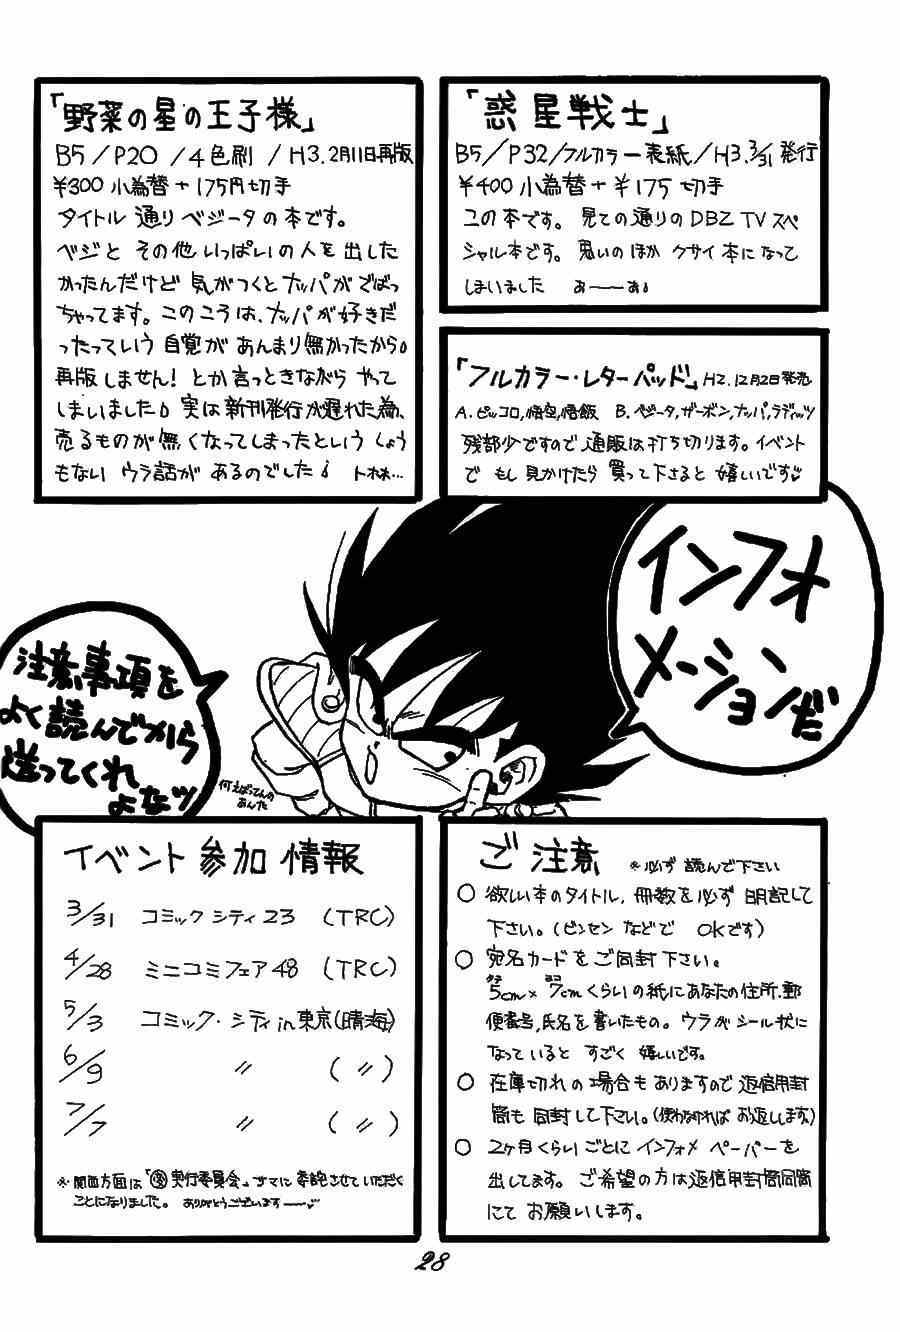 「野菜の星の王子様」
B5/P20/4色刷/H3.2月11日再版
¥300小為替+175円切手
タイトル通りベジータの本です。
ベジとその他いっぱいの人を出した
かったんだけど気がつくとナッパがでばっ
ちゃってます。このころは、ナッパが好きだ
ったっていう自覚があんまり無かったから。
再版しません!とか言っときながらやって
しまいました。実は新刊発行が遅れた為、
売るものが無くなってしまったというしょう
もないウラ話があるのでした!
「惑星戦士」
B5/P32/フルカラー表紙/H3.3/31発行
¥400小為替+¥175切手
この本です。見ての通りのDBZ TVスペ
シャル本です。思いのほかクサイ本になって
しまいました あーーあ。
「フルカラー・レターパッド」H2.12月2日発売
A.ピッコロ,悟空,悟飯 B.ベジータ,ザーボン,ナッパ,ラディッツ
残部少ですので通販は打ち切ります。イベント
でもし見かけたら買って下さると嬉しいです♡
インフォ
メーションだ
注意事項を
よく読んでから
送ってくれ
よなッ
何えばってんの
あんた
イベント参加情報
3/31 コミックシティ23 (TRC)
4/28 ミニコミフェア48 (TRC)
5/3 コミック・シティin東京(晴海)
6/9 〃 (〃)
7/7 〃 (〃)
※関西方面は「実行委員会」サマに委託させていただく
ことになりました。ありがとうございますーー♡
ご注意 ※必ず読んで下さい
○欲しい本のタイトル、冊数を必ず明記して
下さい。(ビンセンなどでOKです)
○宛名カードをご同封下さい。
タテ5cm×ヨコ7cmくらいの紙にあなたの住所.郵
便番号,氏名を書いたもの。ウラがシール状に
なっているとすごく嬉しいです。
○在庫切れの場合もありますので返信用封
筒も同封して下さい。(使わなければお返しします)
○2ヶ月くらいごとにインフォメペーパーを
出してます。ご希望の方は返信用封筒同筒
にてお願いします。
28